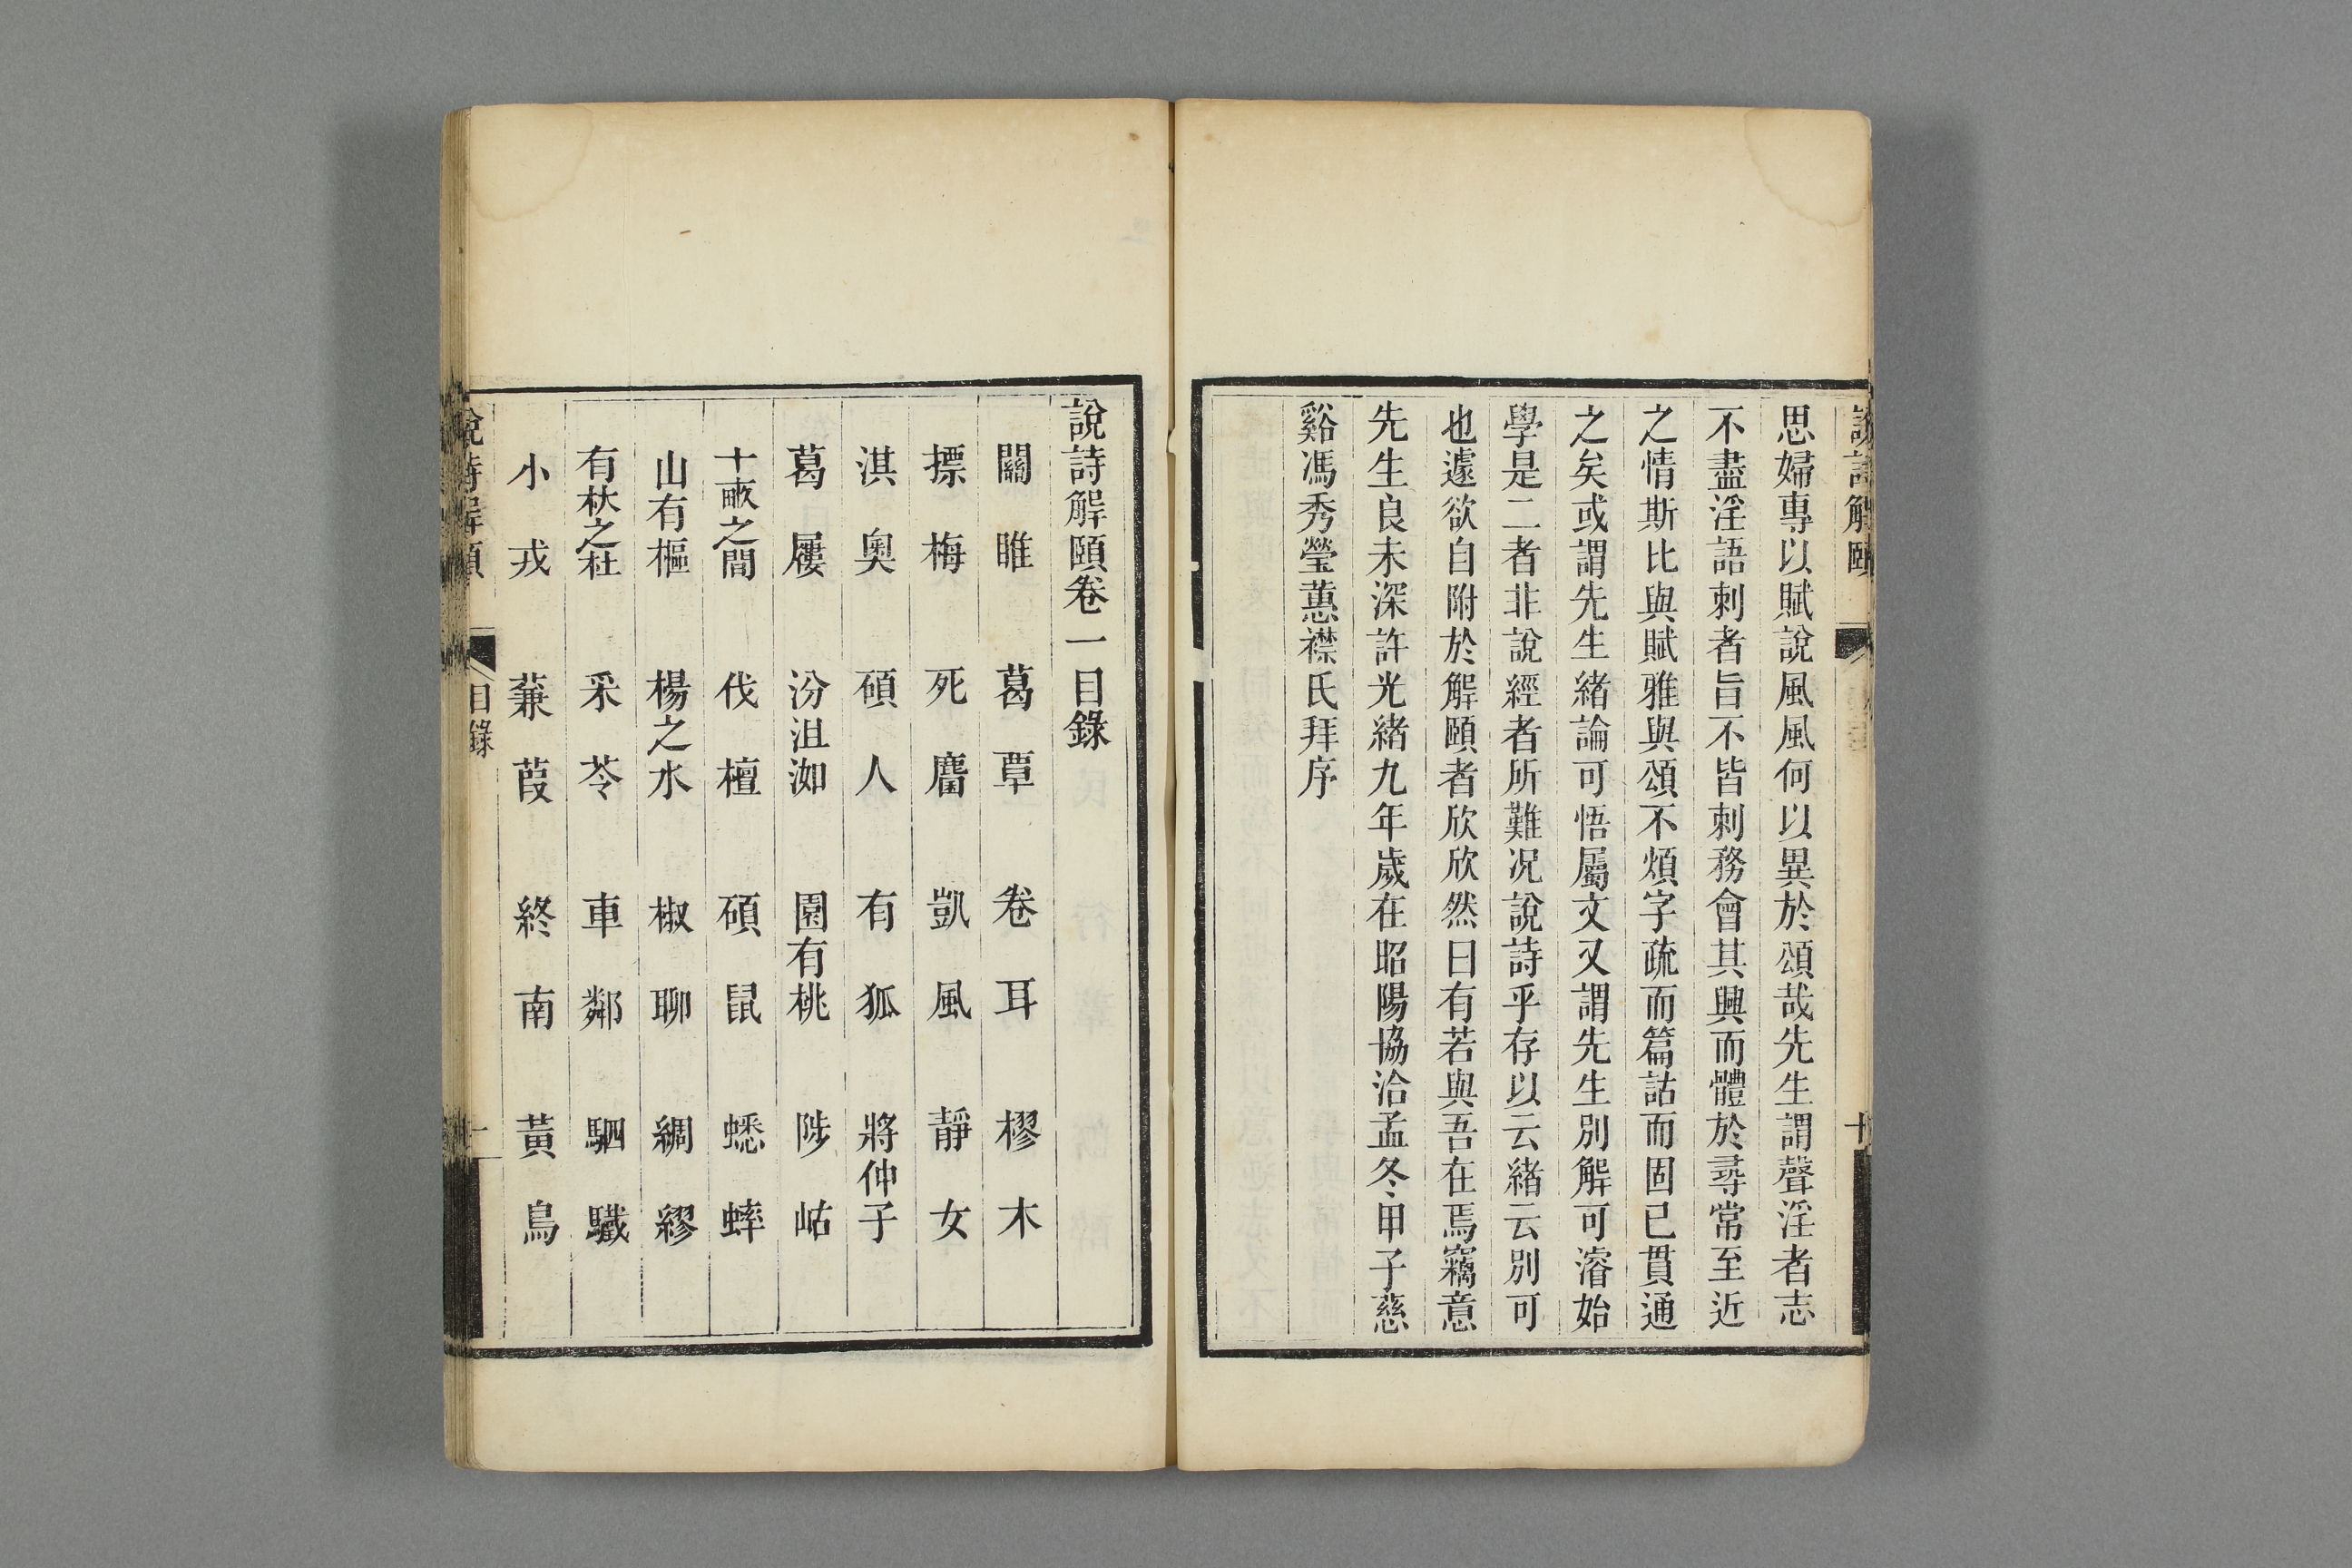 說詩解頤
思婦專以賦說風風何以異於頌哉先生謂聲淫者志
不盡淫語刺者旨不皆刺務會其興而體於尋常至近
之情斯比與賦雅與頌不煩字疏而篇詁而固已貫通
之矣或謂先生緒論可悟屬文又謂先生別解可濬始
學是二者非說經者所難况說詩乎存以云緒云別可
也遽欲自附於解頤者欣欣然曰有若與吾在焉竊意
先生良未深許光緒九年歲在昭陽協洽孟冬甲子慈
谿馮秀瑩蕙襟氏拜序
說詩解頤卷一目錄
關雎 葛覃 卷耳 樛木
摽梅 死麕 凱風 靜女
淇奧 碩人 有狐 將仲子
葛屨 汾沮洳 園有桃 陟岵
十畝之間 伐檀 碩鼠 蟋蟀
山有樞 楊之水 椒聊 綢繆
有杕之杜 采苓 車鄰 駟驖
小戎 蒹葭 終南 黃鳥
說詩解頤 目錄 一